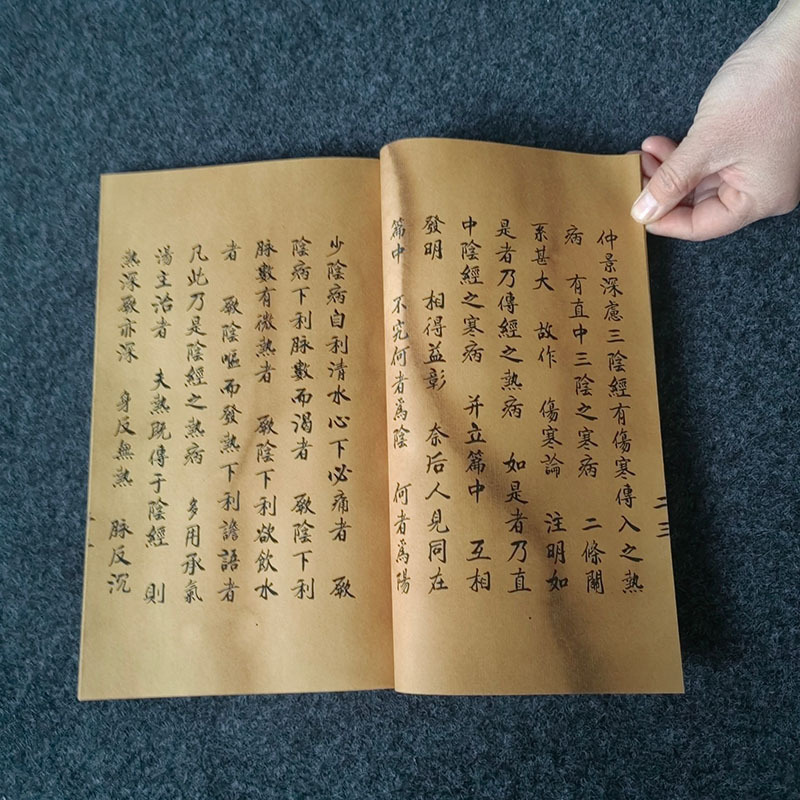 仲景深慮三陰經有傷寒傳入之熱
病 有直中三陰之寒病 二條關
系甚大 故作 傷寒論 注明如
是者乃傳經之熱病 如是者乃直
中陰經之寒病 并立篇中 互相
發明 相得益彰 奈后人見同在
篇中 不究何者爲陰 何者爲陽
二三
少陰病自利清水心下必痛者 厥
陰病下利脉數而渴者 厥陰下利
脉數有微熱者 厥陰下利欲飲水
者 厥陰嘔而發熱下利譫語者
凡此乃是陰經之熱病 多用承氣
湯主治者 夫熱既傳于陰經 則
熱深厥亦深 身反無熱 脉反沉